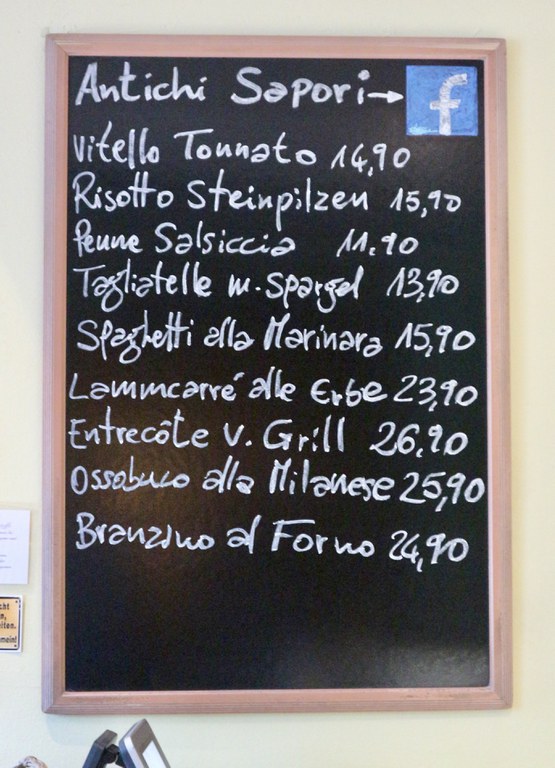 Antichi Sapori → f
Vitello Tonnato 14,90
Risotto Steinpilzen 15,90
Penne Salsiccia 11.90
Tagliatelle m. Spargel 13,90
Spaghetti alla Marinara 15,90
Lammcarré alle Erbe 23,90
Entrecôte v. Grill 26,90
Ossobuco alla Milanese 25,90
Branzino al Forno 24,90